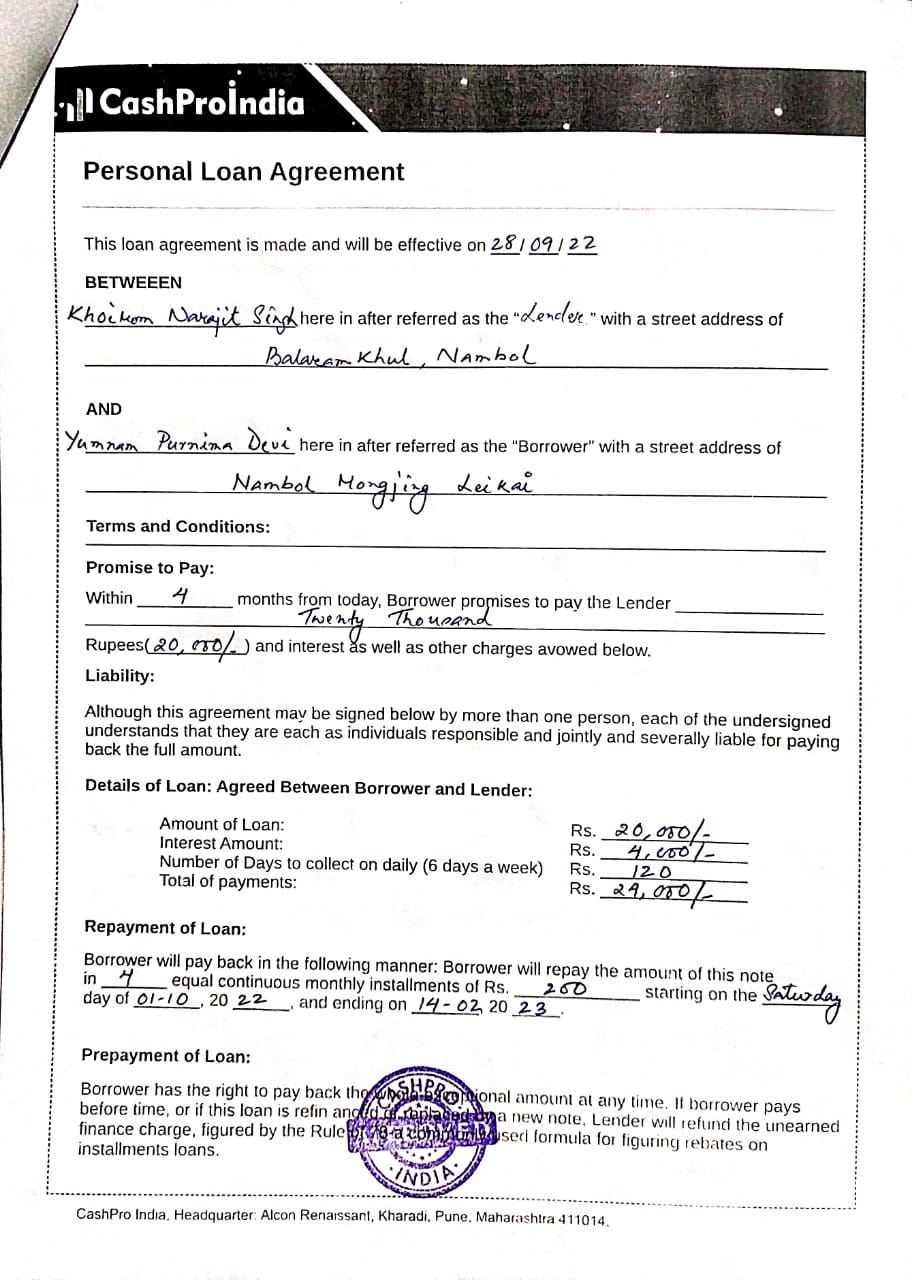 CashProIndia
Personal Loan Agreement
This loan agreement is made and will be effective on 28/09/22
BETWEEEN
Khoirom Narajit Singh here in after referred as the "Lender" with a street address of
Balaram Khul, Nambol
AND
Yumnam Purnima Devi here in after referred as the "Borrower" with a street address of
Nambol Mongjing Leikai
Terms and Conditions:
Promise to Pay:
Within 4 months from today, Borrower promises to pay the Lender
Twenty Thousand
Rupees(20,000/-) and interest as well as other charges avowed below.
Liability:
Although this agreement may be signed below by more than one person, each of the undersigned
understands that they are each as individuals responsible and jointly and severally liable for paying
back the full amount.
Details of Loan: Agreed Between Borrower and Lender:
Amount of Loan: Rs. 20,000/-
Interest Amount: Rs. 4,000/-
Number of Days to collect on daily (6 days a week) Rs. 120
Total of payments: Rs. 24,000/-
Repayment of Loan:
Borrower will pay back in the following manner: Borrower will repay the amount of this note
in 4 equal continuous monthly installments of Rs. 200 starting on the Saturday
day of 01-10, 20 22, and ending on 14-02, 20 23.
Prepayment of Loan:
Borrower has the right to pay back the amount at any time. If borrower pays
before time, or if this loan is refinanced or replaced by a new note, Lender will refund the unearned
finance charge, figured by the Rule of 78-a commonly used formula for figuring rebates on
installments loans.
CASHPRO
INDIA
CashPro India, Headquarter: Alcon Renaissant, Kharadi, Pune, Maharashtra 411014.